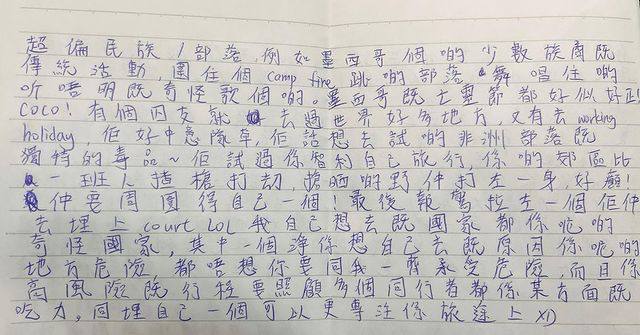 超偏民族/部落,例如墨西哥個啲少數族裔既
傳統活動,圍住個camp fire 跳啲部落舞 唱住啲
听唔明既奇怪歌個啲。墨西哥既亡靈節都好似好正!
COCO! 有個囚友就去過世界好多地方,又有去working
holiday,佢好中意隊草,佢話想去試啲非洲部落既
獨特的毒品~佢試過係智利自己旅行,係啲郊區比
一班人揸槍打劫,搶晒啲野仲打左一身,好癲!
仲要周圍得自己一個!最後報警拉左一個佢仲
去埋上court Lol 我自己想去既國家都係呢啲
奇怪國家,其中一個淨係想自己去既原因係呢啲
地方危險 都唔想你要同我一齊承受危險,而且係
高風險既行程要照顧多個同行者都係某方面既
吃力,同埋自己一個可以更專注係旅途上 XD